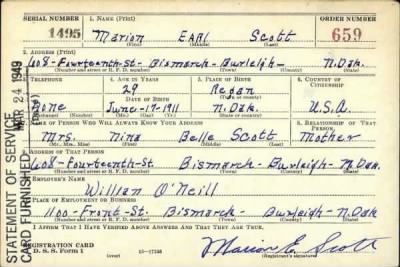 SERIAL NUMBER 1. NAME (Print) ORDER NUMBER
1495 Marion EARL Scott 659
(First) (Middle) (Last)
2. ADDRESS (Print)
608-Fourteenth-St. Bismarch-Burleigh- N.Dak.
(Number and street or R. F. D. number) (Town) (County) (State)
3. TELEPHONE 4. AGE IN YEARS 5. PLACE OF BIRTH 6. COUNTRY OF CITIZENSHIP
29 Regan
DATE OF BIRTH (Town or county)
None June-17-1911 N.Dak. U.S.A.
(Mo.) (Day) (Yr.) (State or country)
OF PERSON WHO WILL ALWAYS KNOW YOUR ADDRESS 8. RELATIONSHIP OF THAT PERSON
Mrs. Nina Belle Scott Mother
(Mr., Mrs., Miss) (First) (Middle) (Last)
ADDRESS OF THAT PERSON
608-Fourteenth-St. Bismarch-Burleigh-N.Dak.
(Number and street or R. F. D. number) (Town) (County) (State)
EMPLOYER'S NAME
William O'Neill
PLACE OF EMPLOYMENT OR BUSINESS
1100-Front-St. Bismarch- Burleigh-N.Dak
(Number and street or R. F. D. number) (Town) (County) (State)
I AFFIRM THAT I HAVE VERIFIED ABOVE ANSWERS AND THAT THEY ARE TRUE.
REGISTRATION CARD
D. S. S. Form 1 (over) Marion E. Scott
(Registrant's signature)
STATEMENT OF SERVICE
CARD FURNISHED
MAR 24 1949